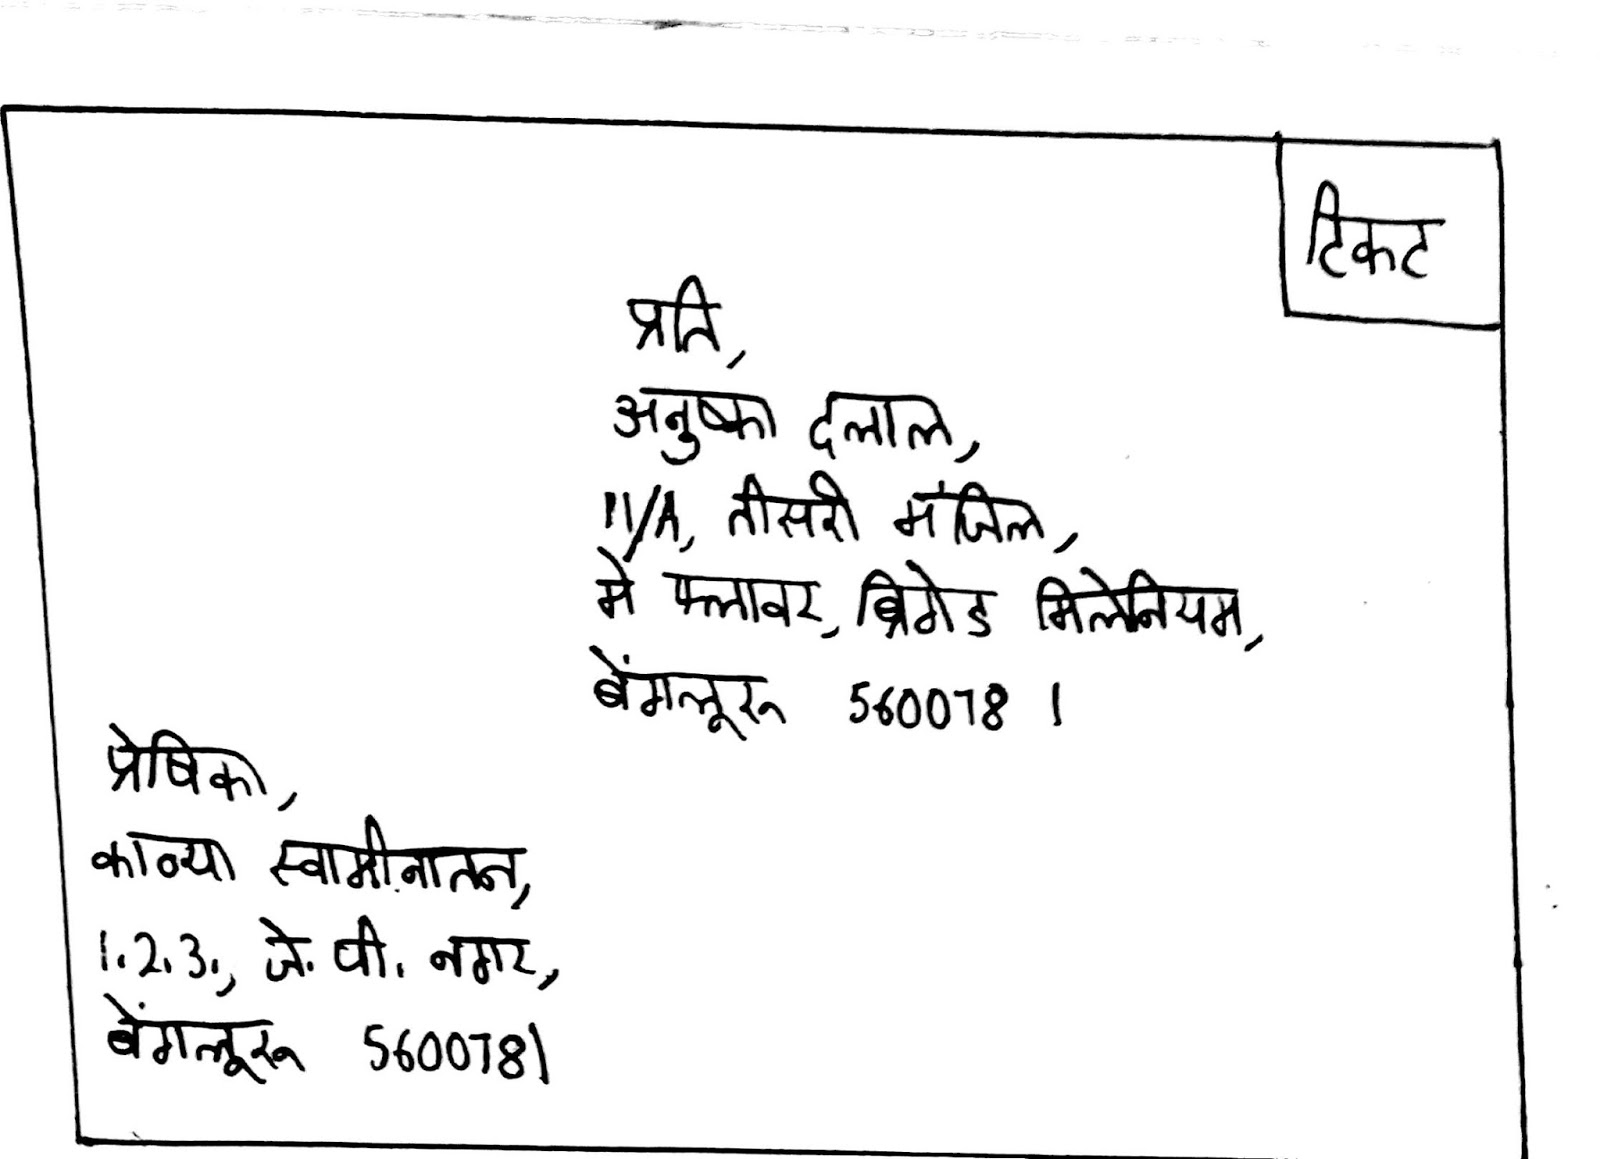 टिकट
प्रति,
अनुष्का दलाल,
11/A, तीसरी मंजिल,
मे फ्लावर, ब्रिगेड मिलेनियम,
बेंगलूरू 560078।
प्रेषिका,
काव्या स्वामीनातन,
1.2.3., जे. पी. नगर,
बेंगलूरू 560078।